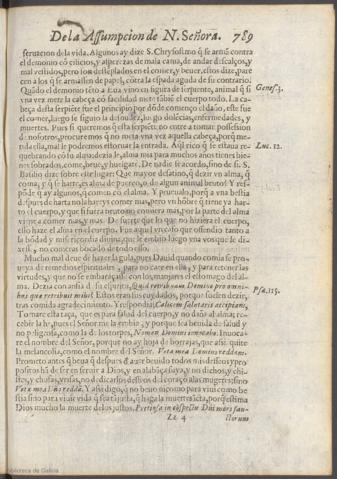 De la Assumpcion de N. Señora. 789
seruacion de la vida. Algunos ay dize S. Chrysostmo q̃ se armã contra
el demonio cõ cilicios, y asperezas de mala cama, de andar descalços, y
mal vestidos, pero son destẽplados en el comer, y beuer, estos dize, pare
cen a los q̃ se armassen de papel, cõtra la espada aguda de su contrario.
Quãdo el demonio tẽto a Eua vino en figura de serpiente, animal q̃ si
vna vez mete la cabeça cõ facilidad mete tãbiẽ el cuerpo todo. La ca-
beça desta serpiẽte fue el principio por dõde començo el daño, este fue
el comer, luego se siguio la desnudez, luego dolẽcias, enfermedades, y
muertes. Pues si queremos q̃ esta serpiẽte no entre a tomar possession
de nosotros, procuremos q̃ no meta vna vez aquella cabeça, porq̃ me-
tida ella, mal le podremos estoruar la entrada. Aql rico q̃ se estaua re
quebrando cõ su alma dezia le, alma mia para muchos años tienes bie
nes sobrados, come, beue, y huelgate. De nadie se acordo, sino de si. S.
Basilio dize sobre este lugar: Que mayor desatino, q̃ dezir vn alma, q̃
coma, y q̃ se harte, es alma de puerco, o de algun animal bruto? Y res-
põde q̃ ay algunos, q̃ comen cõ el alma. Y pruualo, porq̃ a vna bestia
despues de harta no la hareys comer mas, pero vn hõbre q̃ tiene ya har-
to el cuerpo, y que si fuera bruto no comiera mas, por la parte del alma
viene a comer mas, y mas. De suerte que lo que no hiziera el cuerpo,
ello haze el alma en el cuerpo. Pues aqui vereis lo que ofendio tanto a
la bõdad y misericordia diuina, que le embio luego vna voz que le di-
xesse, no comeras bocado de todo esso.
Mucho mal deue de hazer la gula, pues Dauid quando comia se pro-
ueya de remedios espirituales, para no caer en ella, y para retener las
virtudes, y que no se embaraçasse con los manjares el estomago del al-
ma. Dezia con ansia de su espiritu, Quid retribuam Domino pro omni-
bus quæ retribuit mihi? Estos eran sus cuydados, porque suelen dezir,
tras comida agradecimiento. Y respondia, Calicem salutaris accipiam,
Tomare esta taça, que es para salud del cuerpo, y no daña al alma; re-
cebir la he, pues el Señor me la embia, y porque sea beuida de salud y
no põçoña, como la de los torpes, Nomen Domini inuocabo. Inuoca-
re el nombre del Señor, porque no ay hoja de borrajas, que assi quite
la melancolia, como el nombre del Señor. Vota mea Domino reddam.
Prometo antes q̃ beua q̃ despues q̃ aure beuido todos mis desseos y pro
positos hã de ser en seruir a Dios, y en alabãça suya, y no en dichos, y chi-
stes, y chufas, vñas, no dedicar los desseos del coraçõ a las mugeres sino
Vota mea Dño reddã. Y assi digo, q̃ no beuo mi vino para viuir como be
stia sino para viuir vida q̃ sea sancta, q̃ haga la muerte sancta, porq̃ estima
Dios mucho la muerte de los justos. Pretiosa in cõspectu Dñi mors san-
Zz 4 ctorum
Genes. 3.
Luc. 12.
Psa. 115.
Biblioteca de Galicia